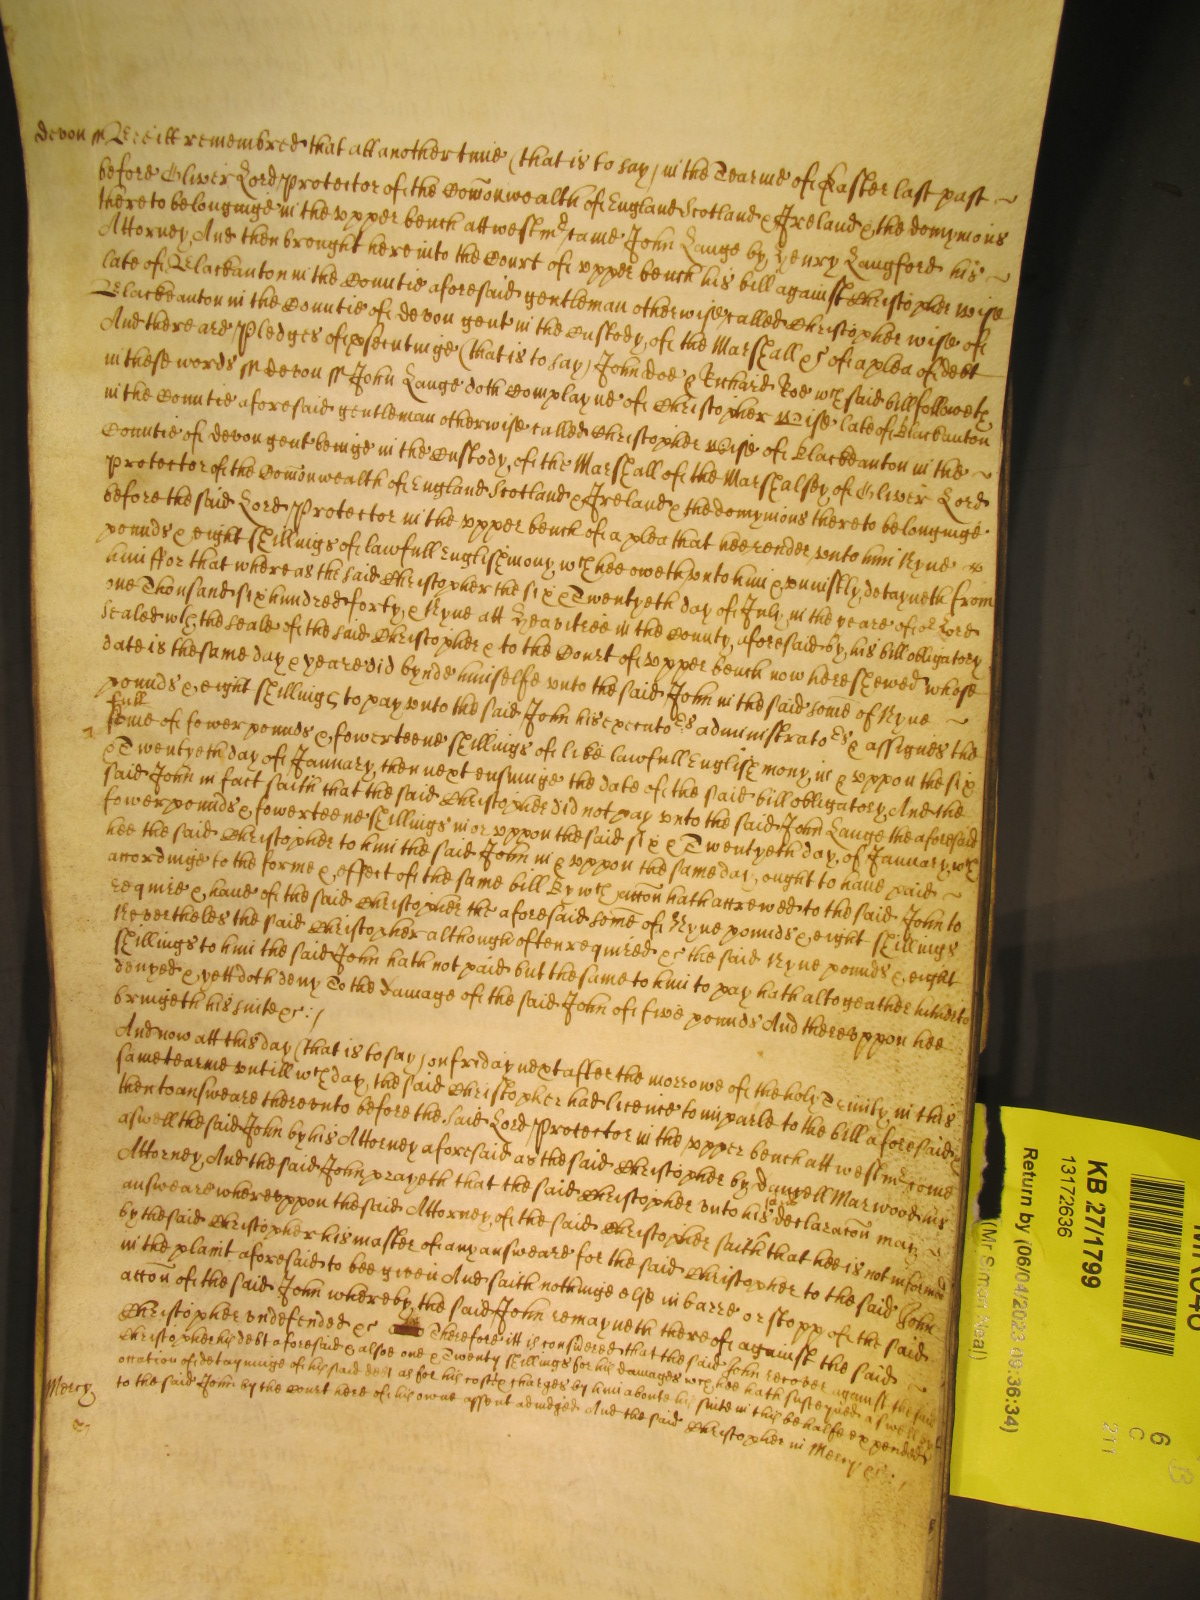 Devon ss Bee itt remembred that att another tyme (that is to say) in the Tearme of Easter last past
before Oliver Lord Protector of the Com̄onwealth of England Scotland & Ireland & the domynions
thereto belonginge in the vpper bench att westmr came John Lange by Henry Langford his
Attorney And then brought here into the Court of vpper bench his bill against Christopher wise
late of Blackanton in the Countie aforesaid gentleman otherwise called Christopher wise of
Blackanton in the Countie of devon gent in the Custody of the Marshall &c of a plea of debt
And there are Pledges of psecutinge (that is to say) John doe & Richard Roe wch said bill followeth
in these words ss devon ss John Lange doth Complayne of Christopher wise late of Blackanton
in the Countie aforesaid gentleman otherwise called Christopher wise of Blackanton in the
Countie of devon gent beinge in the Custody of the Marshall of the Marshalsey of Oliver Lord
protector of the Com̄onwealth of England Scotland & Ireland & the domynions thereto belonginge
before the said Lord Protector in the vpper bench of a plea that hee render vnto him Nyne
pounds & eight shillings of lawfull English mony wch hee oweth vnto him & vniustly detayneth from
him ffor that whereas the said Christopher the six & Twentyeth day of July in the yeare of or Lord
one Thousand six hundred forty & Nyne att in the County aforesaid by his bill obligatory
sealed wth the seale of the said Christopher & to the Court of vpper bench now here shewed whose
date is the same day & yeare did bynde himselfe vnto the said John in the said some of Nyne
pounds & eight shillings to pay vnto the said John his executors administrators & assignes the
full
some of fower pounds & fowerteene shillings of like lawfull English mony in & vppon the six
& Twentyeth day of January then next ensuinge the date of the said bill obligatory And the
said John in fact saith that the said Christopher did not pay vnto the said John Lange the aforesaid
fower pounds & fowerteene shillings in or vppon the said six & Twentyeth day of January wch
hee the said Christopher to him the said John in & vppon the same day ought to have paid
accordinge to the forme & effect of the same bill By wch acc̄on hath accrewed to the said John to
require & have of the said Christopher the aforesaid some of Nyne pounds & eight shillings
Neverthelesse the said Christopher although often required &c the said Nyne pounds & eight
shillings to him the said John hath not paid but the same to him to pay hath altogeather hitherto
denyed & yett doth deny To the damage of the said John of five pounds And therevppon hee
bringeth his suite &c
And now att this day (that is to say) on friday next after the morrowe of the holy Trinity in this
same tearme vntill wch day the said Christopher had licence to imparle to the bill aforesaid &
then to answeare therevnto before the said Lord Protector in the vpper bench att westmr come
aswell the said John by his Attorney aforesaid as the said Christopher by Danyell Marwood his
Attorney And the said John prayeth that the said Christopher vnto his declarac̄on may
answeare wherevppon the said Attorney of the said Christopher saith that hee is not informed
by the said Christopher his master of any answeare for the said Christopher to the said John
in the plaint aforesaid to bee given And saith nothinge else in barre or stopp of the said
acc̄on of the said John whereby the said John remayneth thereof against the said
Christopher vndefended &c Therefore itt is considered that the said John recover against the said
Christopher his debt aforesaid & alsoe one & Twenty shillings for his damages wch hee hath susteyned aswell by
occation of detayninge of his said debt as for his costs & charges by him aboute his suite in this behalfe expended
to the said John by the Court here of his owne assent adiudged And the said Christopher in Mercy &c
Mercy
KB 27/1799
13172636
Return by (06/04/2023 09:36:34)
(Mr Simon Neal)
6
C
211